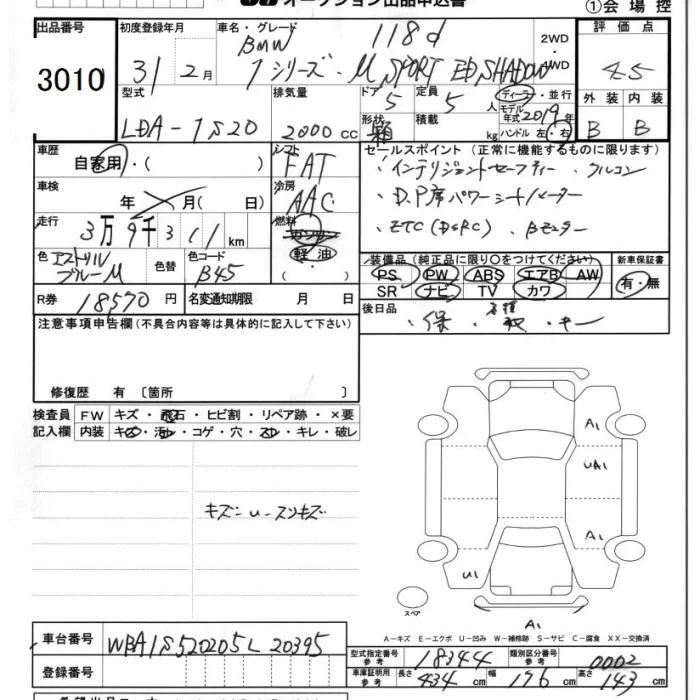 オークション出品申込書
①会場控
出品番号 初度登録年月 車名・グレード 評価点
3010 31年2月 BMW 118d 2WD・4WD 4.5
1シリーズ・M SPORT ED SHADOW
型式 排気量 ドア 定員 ディーラー・並行 外装 内装
LDA-1S20 2000cc 5 5人 モデル年式 2019年 B B
形状 箱 積載 kg ハンドル 左・右
車歴 シフト セールスポイント (正常に機能するものに限ります)
自家用・( ) FAT ・インテリジェントセーフティー ・クルコン
車検 年 月( 日) 冷房 AAC ・D.P席パワーシート/メーター
走行 3万9千311km 燃料 ガソリン 軽油 ・( ) ・ETC(DSRC) ・Bモニター
色 エストリルブルーM 色替 色コード B45
装備品(純正品に限り○をつけてください) 新車保証書
PS PW ABS エアB AW 有・無
SR ナビ TV カワ
R券 18570円 名変通知期限 月 日 後日品
・保・各種取・キー
注意事項申告欄(不具合内容等は具体的に記入して下さい)
修復歴 有 〔箇所 〕
検査員 FW キズ・飛石・ヒビ割・リペア跡・×要
記入欄 内装 キズ・汚れ・コゲ・穴・スレ・キレ・破レ
キズ小U・スリキズ
A1
UA1
A1
U1
スペア
A1
A-キズ E-エクボ U-凹み W-補修跡 S-サビ C-腐食 XX-交換済
車台番号 WBA1S520205L20395
型式指定番号 参考 18344 類別区分番号 参考 0002
登録番号 車庫証明用 参考 長さ 434cm 幅 176cm 高さ 143cm